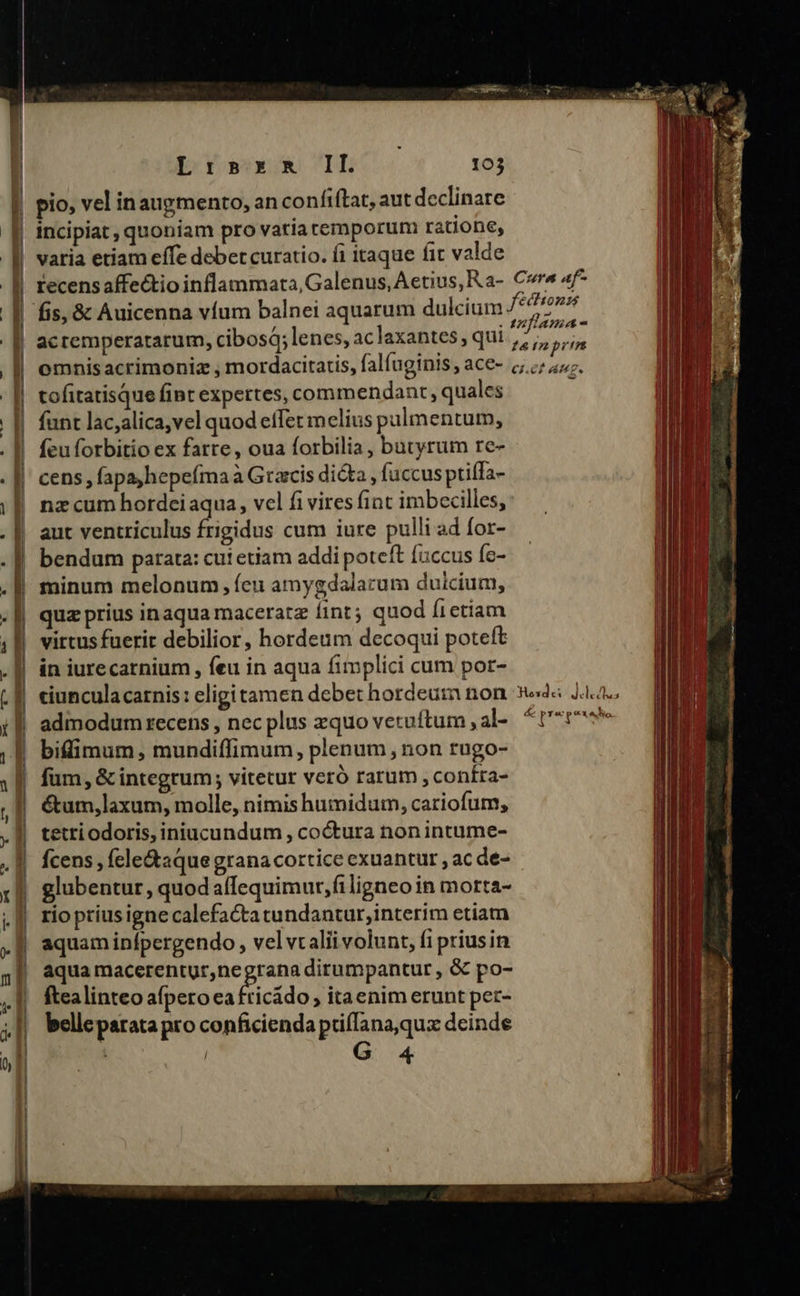 LIBER II. 103
pio, vel in augmento, an conſiſtat, aut declinare
incipiat, quoniam pro varia temporum ratione,
varia etiam eſſe debet curatio. ſi itaque ſit valde
recens affectio inflammata, Galenus, Aetius, Ra-
ſis, & Auicenna vſum balnei aquarum dulcium
ac temperatarum, cibosq́; lenes, ac laxantes, qui
omnis acrimoniæ, mordacitatis, ſalſuginis, ace-
toſitatisque ſint expertes, commendant, quales
ſunt lac, alica, vel quod eſſet melius pulmentum,
ſeu ſorbitio ex farre, oua ſorbilia, butyrum re-
cens, ſapa, hepeſma à Græcis dicta, ſuccus ptiſſa-
næ cum hordei aqua, vel ſi vires ſint imbecilles,
aut ventriculus frigidus cum iure pulli ad ſor-
bendum parata: cui etiam addi poteſt ſuccus ſe-
minum melonum, ſeu amygdalarum dulcium,
quæ prius in aqua maceratæ ſint; quod ſi etiam
virtus fuerit debilior, hordeum decoqui poteſt
in iure carnium, ſeu in aqua ſimplici cum por-
tiuncula carnis: eligi tamen debet hordeum non
admodum recens, nec plus æquo vetuſtum, al-
biſſimum, mundiſſimum, plenum, non rugo-
ſum, & integrum; vitetur verò rarum, contra-
ctum, laxum, molle, nimis humidum, carioſum,
tetri odoris, iniucundum, coctura non intume-
ſcens, ſelectaque grana cortice exuantur, ac de-
glubentur, quod aſſequimur, ſi ligneo in morta-
rio prius igne calefacta tundantur, interim etiam
aquam inſpergendo, vel vt alii volunt, ſi prius in
aqua macerentur, ne grana dirumpantur, & po-
ſtea linteo aſpero ea fricãdo, ita enim erunt per-
belle parata pro conficienda ptiſſana, quæ deinde
G 4
Cura af-
fectionis
inflama-
ta in prin
ci. et aug.
Hordei
& præparatio